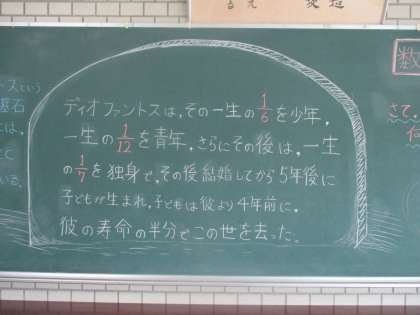 ディオファントスは,その一生の1/6を少年,
一生の1/12を青年,さらにその後は,一生
の1/7を独身で,その後結婚してから5年後に
子どもが生まれ,子どもは彼より4年前に,
彼の寿命の半分でこの世を去った。
スという
墓石
は,
いる.
数
さて,